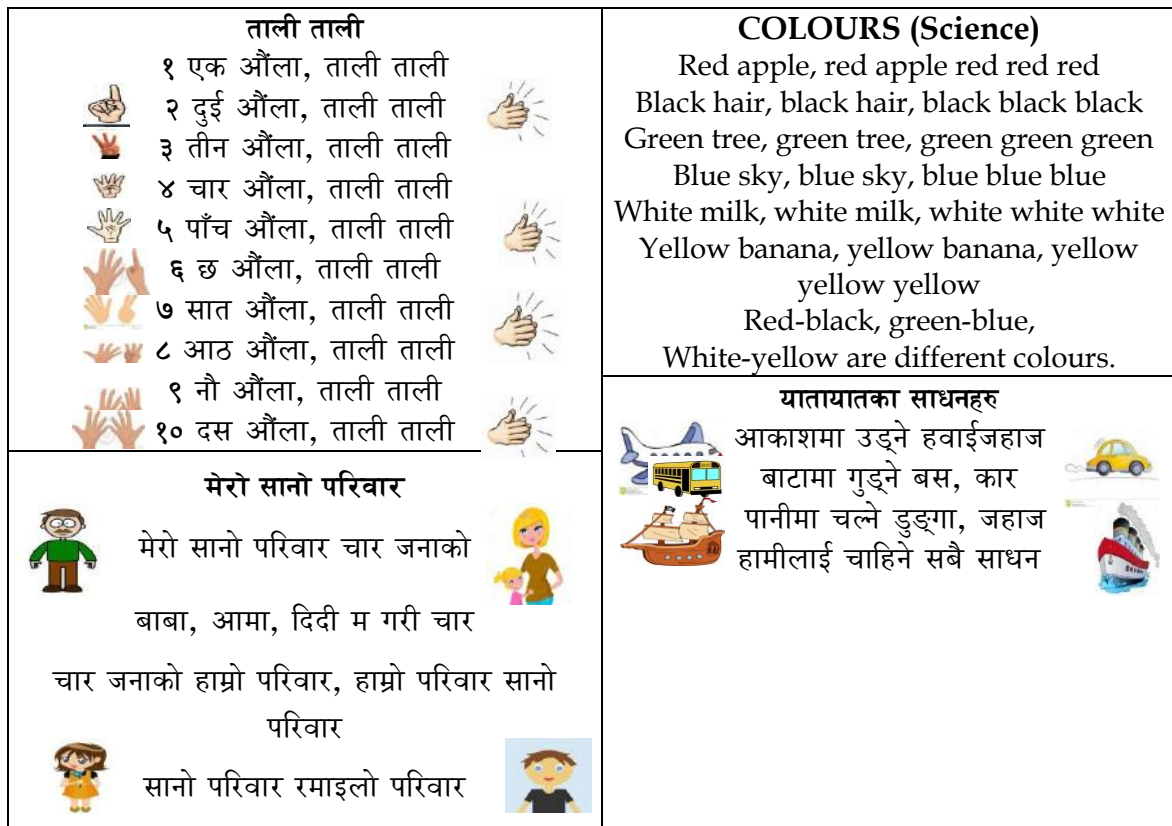 ताली ताली
१ एक औंला, ताली ताली
२ दुई औंला, ताली ताली
३ तीन औंला, ताली ताली
४ चार औंला, ताली ताली
५ पाँच औंला, ताली ताली
६ छ औंला, ताली ताली
७ सात औंला, ताली ताली
८ आठ औंला, ताली ताली
९ नौ औंला, ताली ताली
१० दस औंला, ताली ताली
मेरो सानो परिवार
मेरो सानो परिवार चार जनाको
बाबा, आमा, दिदी म गरी चार
चार जनाको हाम्रो परिवार, हाम्रो परिवार सानो
परिवार
सानो परिवार रमाइलो परिवार
COLOURS (Science)
Red apple, red apple red red red
Black hair, black hair, black black black
Green tree, green tree, green green green
Blue sky, blue sky, blue blue blue
White milk, white milk, white white white
Yellow banana, yellow banana, yellow
yellow yellow
Red-black, green-blue,
White-yellow are different colours.
यातायातका साधनहरु
आकाशमा उड्ने हवाईजहाज
बाटामा गुड्ने बस, कार
पानीमा चल्ने डुङ्गा, जहाज
हामीलाई चाहिने सबै साधन